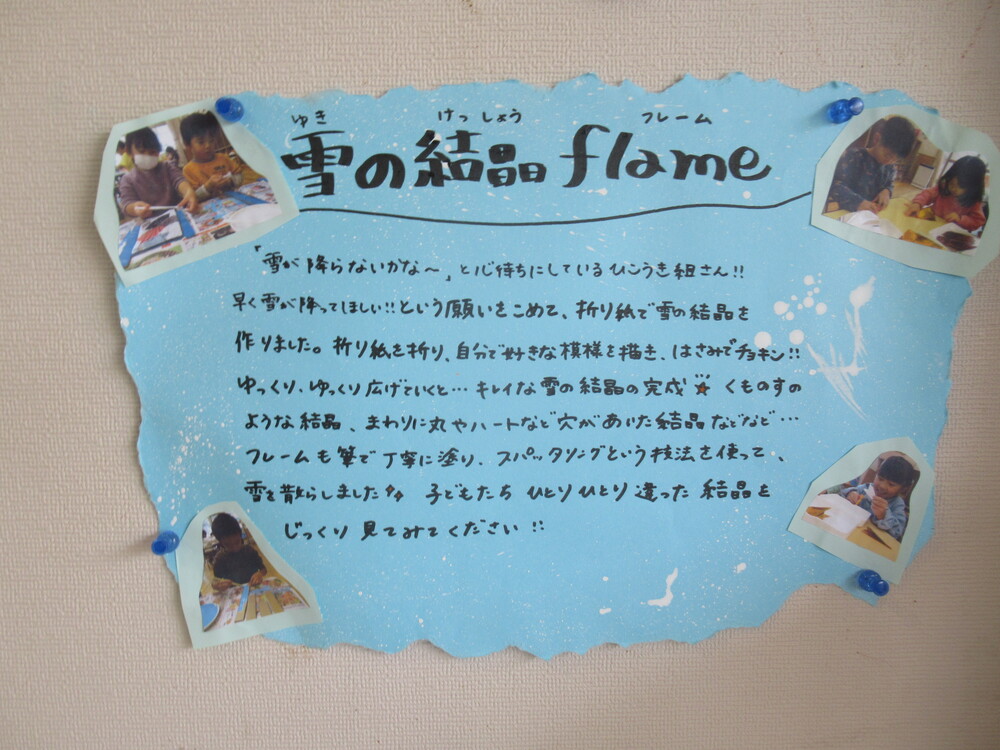 ゆき けっしょう フレーム
雪の結晶 flame
「雪が降らないかな〜」と心待ちにしているひこうき組さん!!
早く雪が降ってほしい!!という願いをこめて、折り紙で雪の結晶を
作りました。折り紙を折り、自分で好きな模様を描き、はさみでチョキン!!
ゆっくり、ゆっくり広げていくと…キレイな雪の結晶の完成☆ くものすの
ような結晶、まわりに丸やハートなど穴があいた結晶などなど…
フレームも筆で丁寧に塗り、スパッタリングという技法を使って、
雪を散らしました 子どもたち ひとりひとり違った結晶を
じっくり見てみてください!!